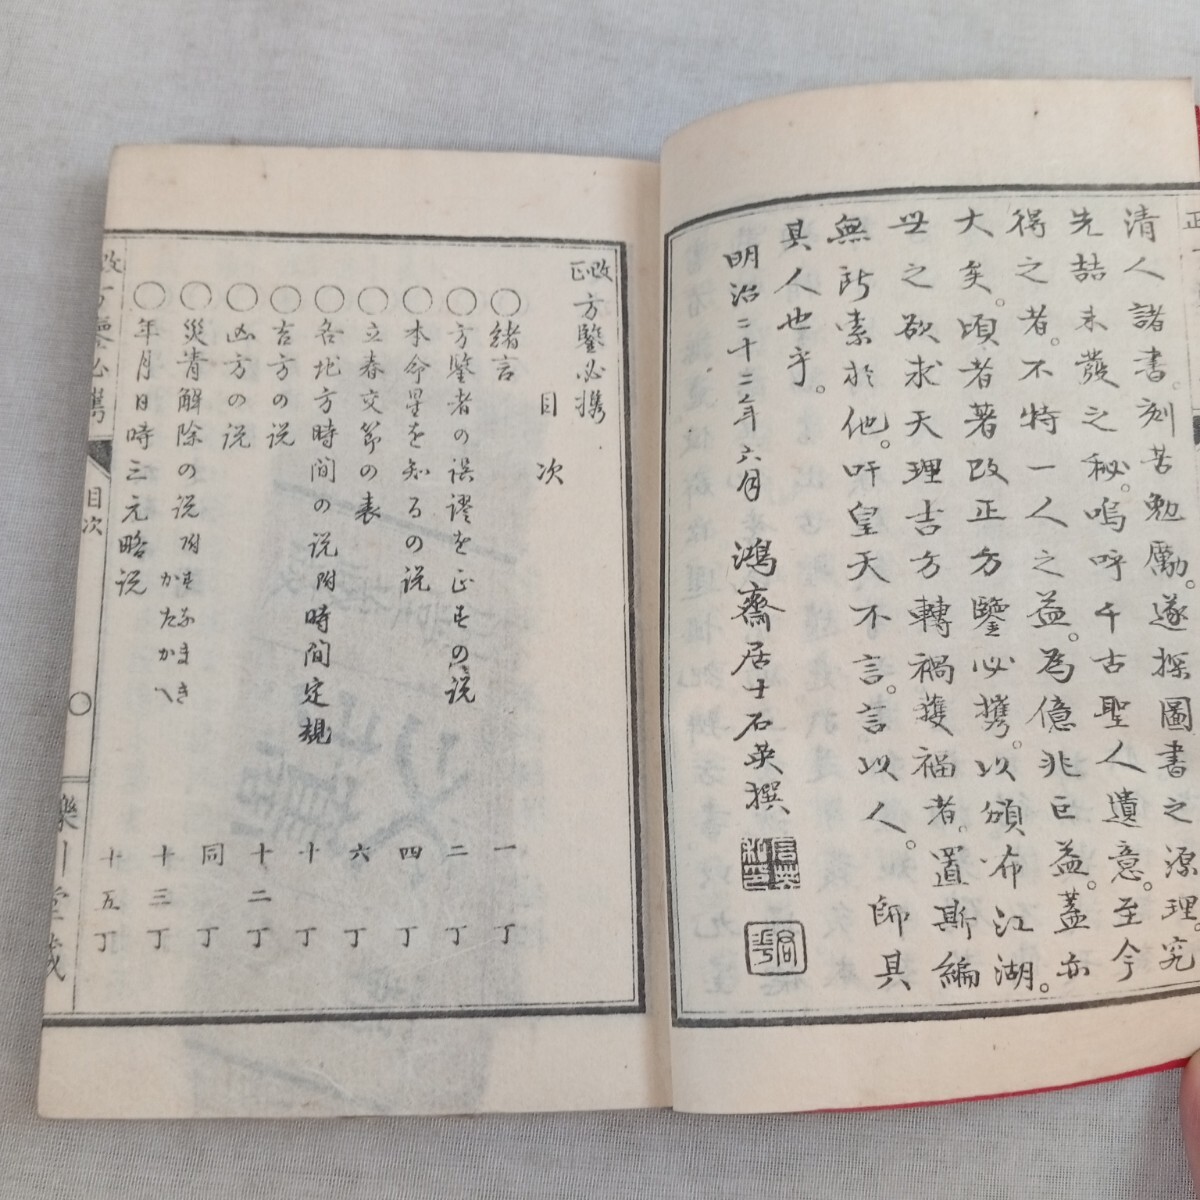 清人諸書。刻苦勉勵。遂探圖書之源理。究
先喆未發之秘。嗚呼千古聖人遺意。至今
得之者。不特一人之益。為億兆巨益。蓋亦
大矣。頃者著改正方鑒必携。以頒布江湖。
世之欲求天理吉方轉禍獲福者。置斯編
無所索於他。吁皇天不言。言以人。師具
具人也乎。
明治二十二年六月 鴻齋居士石英撰
改正方鑒必携
目次
〇緒言 一丁
〇方鑒者の誤謬を正すの説 二丁
〇本命星を知るの説 四丁
〇立春交節の表 六丁
〇各地方時間の説附時間定規 十丁
〇吉方の説 十二丁
〇凶方の説 同丁
〇災眚解除の説附かたたかへ 十三丁
〇年月日時三元略説 十五丁
目次